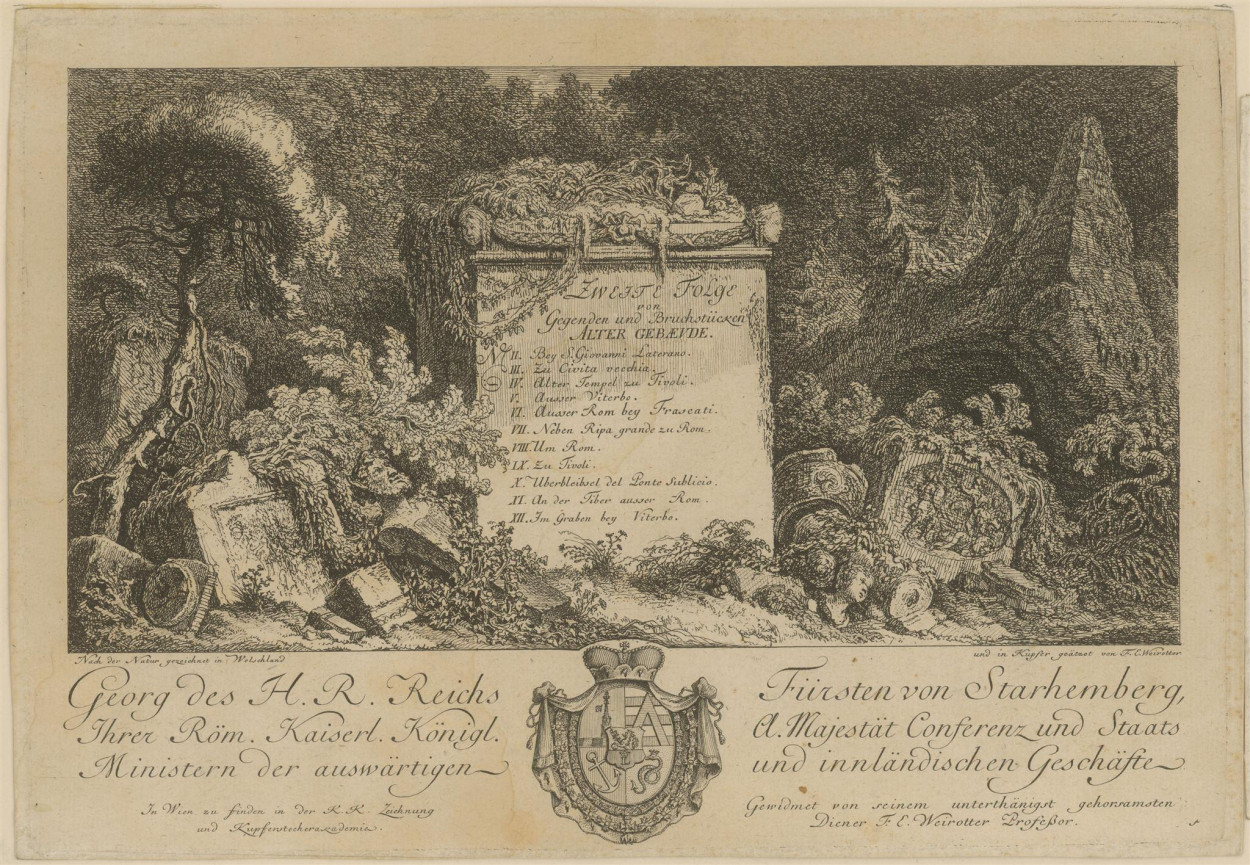 ZWEITE FOLGE
von
Gegenden und Bruchstücken
ALTER GEBÆVDE.
No II. Bey S. Giovanni Laterano.
III. Zu Civita vecchia.
IV. Alter Tempel zu Tivoli.
V. Ausser Viterbo.
VI. Ausser Rom bey Frascati.
VII. Neben Ripa grande zu Rom.
VIII. Um Rom.
IX. Zu Tivoli.
X. Uberbleibsel del Ponte Sublicio.
XI. An der Tiber ausser Rom.
XII. Im Graben bey Viterbo.
Nach der Natur gezeichnet in Welschland
und in Kupfer geätzet von F. E. Weirotter
Georg des H. R. Reichs Fürsten von Starhemberg,
Ihrer Röm. Kaiserl. Königl. A. Majestät Conferenz und Staats
Ministern der auswärtigen und innländischen Geschäfte
In Wien zu finden in der K. K. Zeichnung
und Kupferstecheracademie.
Gewidmet von seinem unterthänigst gehorsamsten
Diener F. E. Weirotter Profeßor.